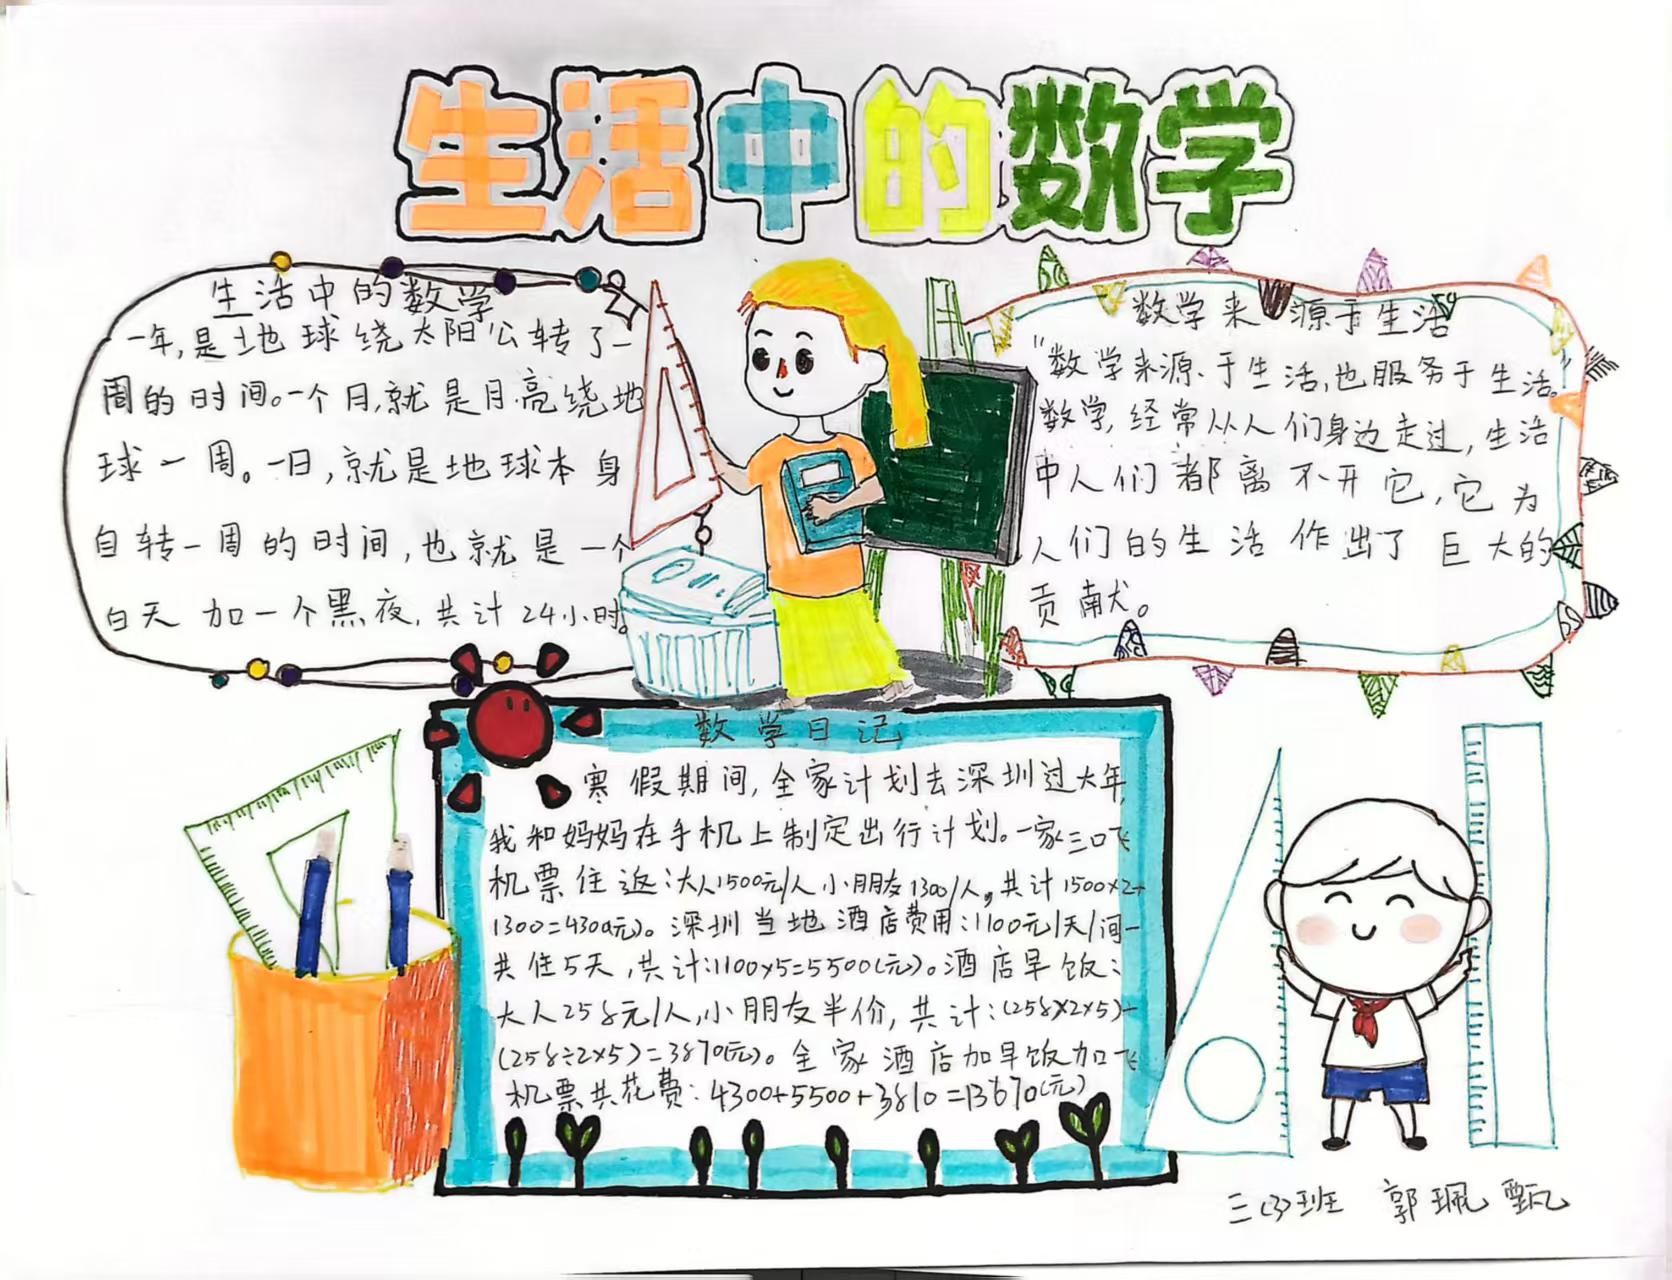 生活中的数学
生活中的数学
一年,是地球绕太阳公转了一
周的时间。一个月,就是月亮绕地
球一周。一日,就是地球本身
自转一周的时间,也就是一个
白天加一个黑夜,共计24小时。
数学来源于生活
"数学来源于生活,也服务于生活。
数学,经常从人们身边走过,生活
中人们都离不开它,它为
人们的生活作出了巨大的
贡献。
数学日记
寒假期间,全家计划去深圳过大年,
我和妈妈在手机上制定出行计划。一家三口飞
机票往返:大人1500元/人,小朋友1300/人。共计1500×2+
1300=4300(元)。深圳当地酒店费用:1100元/天/间一
共住5天,共计:1100×5=5500(元)。酒店早饭:
大人258元/人,小朋友半价,共计:(258×2×5)+
(258÷2×5)=3870(元)。全家酒店加早饭加飞
机票共花费:4300+5500+3870=13670(元)
三(3)班 郭珮甄